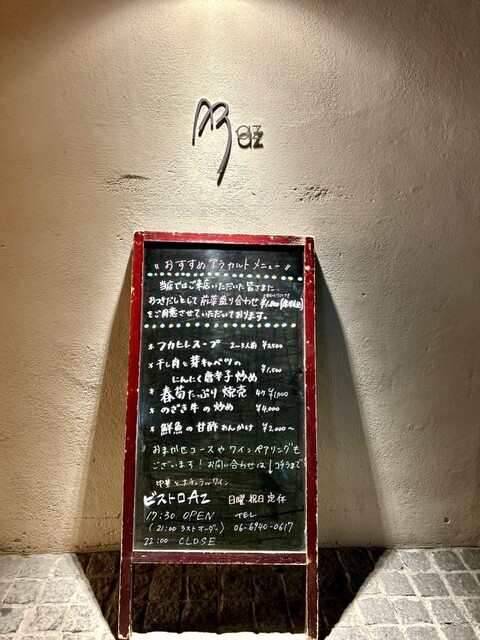 az
〃おすすめ アラカルト メニュー〃
当店ではご来店いただいた皆さまに
おつきだしとして 前菜盛り合わせ ¥1,800
をご用意させていただいております。
* フカヒレスープ 2〜3人前 ¥2,500
* 干し肉と芽キャベツの
にんにく唐辛子炒め ¥1,500
* 春菊たっぷり焼売 4ケ ¥1,000
* のざき牛の炒め ¥4,000
* 鮮魚の甘酢あんかけ ¥2,000〜
おまかせコースやワインペアリングも
ございます! お問い合わせは コチラまで
中華とナチュラルワイン
ビストロAz 日曜 祝日 定休
17:30 OPEN TEL
(21:00 ラストオーダー) 06-6940-0617
22:00 CLOSE